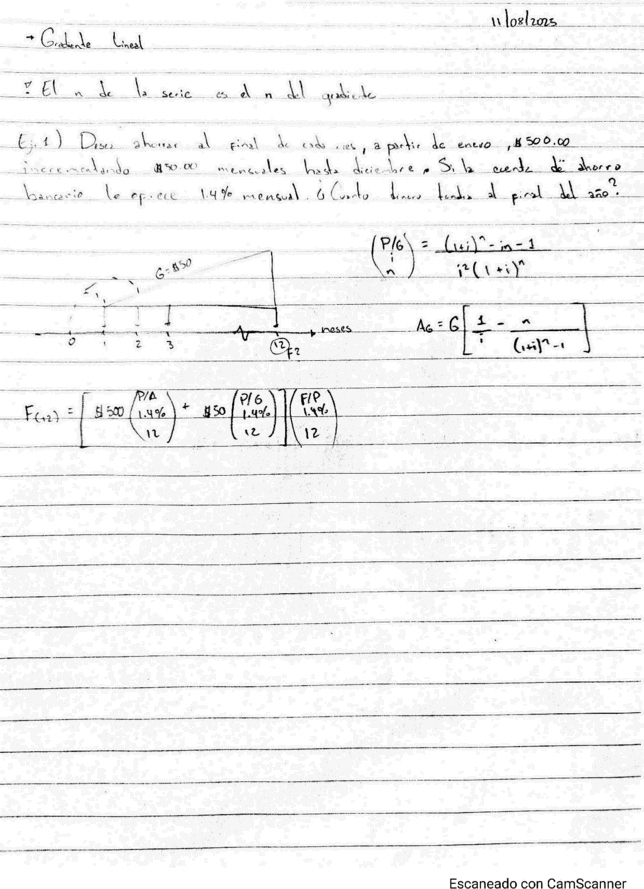 11/08/2025
→ Gradiente Lineal
El n de la serie es el n del gradiente
Ej. 1) Desea ahorrar al final de cada mes, a partir de enero, $500.00
incrementando $50.00 mensuales hasta diciembre. Si la cuenta de ahorro
bancario le ofrece 1.4% mensual. ¿Cuanto dinero tendra al final del año?
(P/G i n) = (1+i)^n - in - 1 / i²(1+i)^n
G=$50
0 1 2 3 12 F? meses
A_G = G [1/i - n/((1+i)^n - 1)]
F(12) = [$500 (P/A 1.4% 12) + $50 (P/G 1.4% 12)] (F/P 1.4% 12)
Escaneado con CamScanner